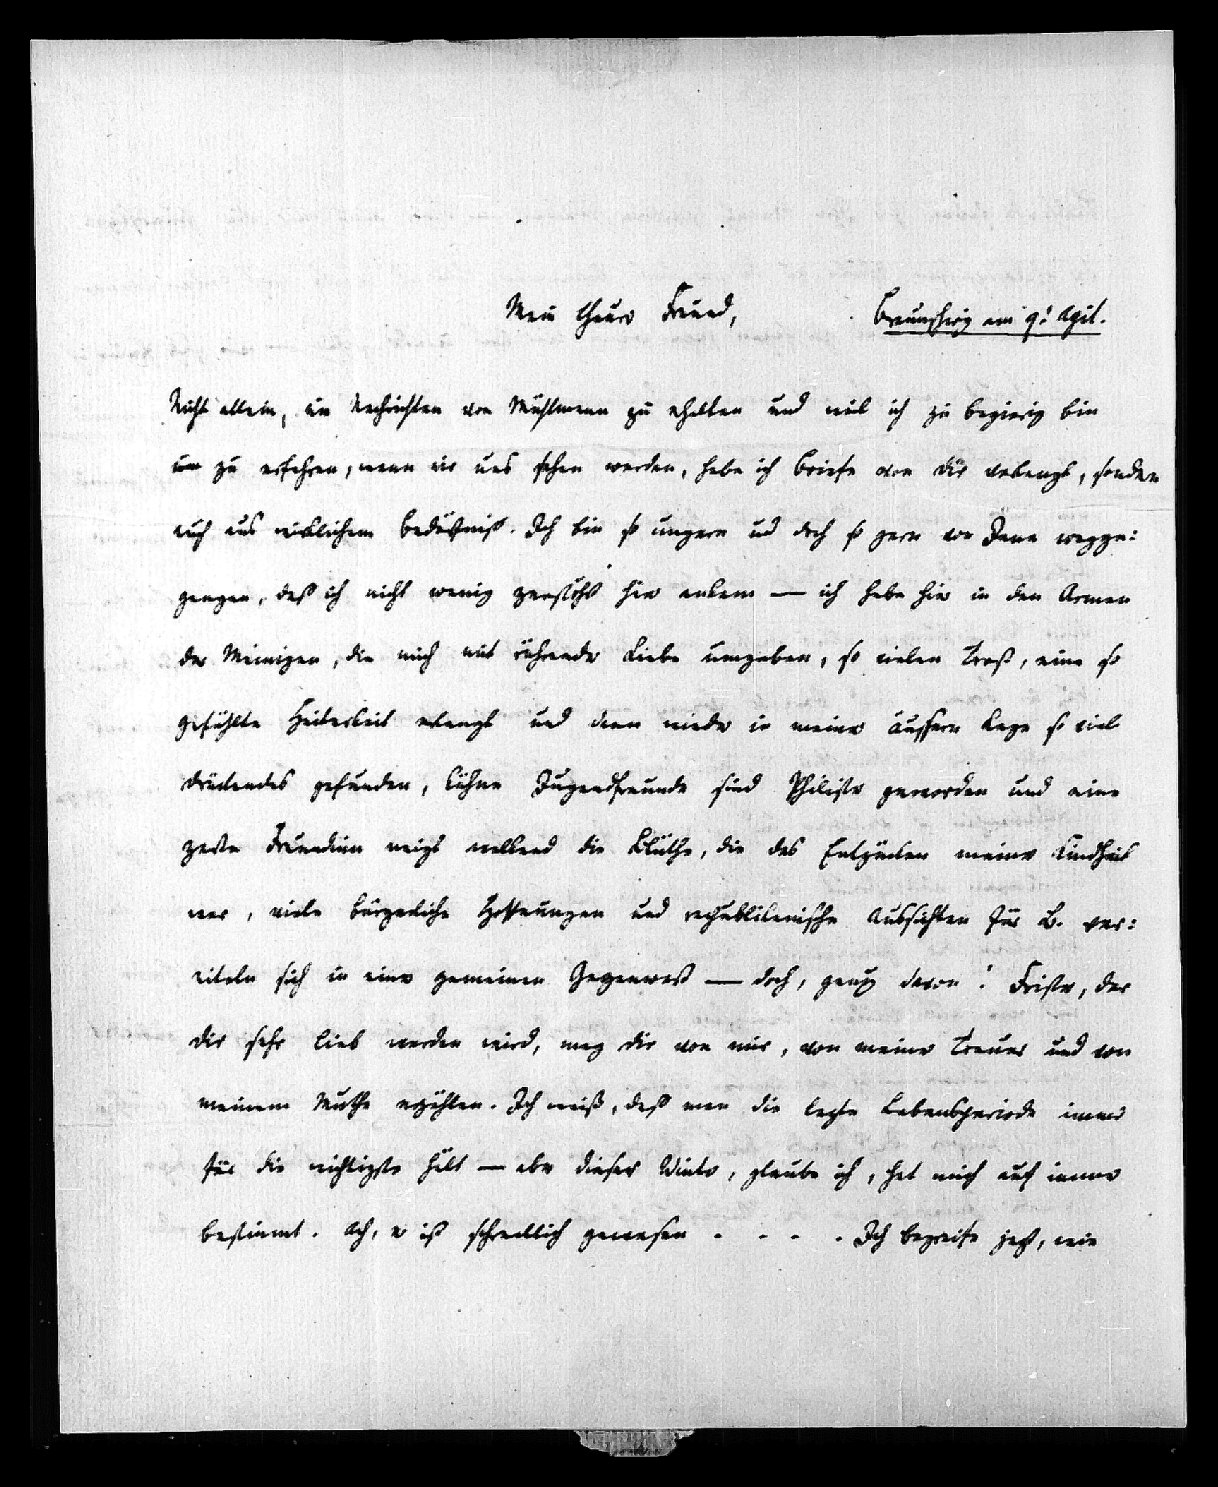 Mein theurer Freund,
Braunschweig am 9t April.
Nicht allein, um Nachrichten von Muhlmann zu erhalten und weil ich zu begierig bin
um zu erfahren, wenn wir uns sehen werden, habe ich Briefe von dir verlangt, sondern
auch aus wirklichem Bedürfniß. Ich bin so ungern und doch so gern von Jena wegge:
gangen, daß ich nicht wenig zerstöhrt hier ankam — ich habe hier in den Armen
der Meinigen, die mich mit rührender Liebe umgeben, so vielen Trost, eine so
gefühlte Heiterkeit erlangt und dann wieder in meiner äussern Lage so viel
drückendes gefunden, kühne Jugendfreunde sind Philister geworden und eine
zarte Freundinn neigt welkend die Blüthe, die das Entzücken meiner Kindheit
war, viele bürgerliche Hoffnungen und republikanische Aussichten für B. ver:
eiteln sich in einer gemeinen Gegenwart — doch, genug davon! Frister, der
dir sehr lieb werden wird, mag dir von mir, von meiner Trauer und von
meinem Muthe erzählen. Ich weiß, daß man die lezte Lebensperiode immer
für die wichtigste hält — aber dieser Winter, glaube ich, hat mich auf immer
bestimmt. Ach, er ist schrecklich gewesen . . . . Ich begreife jezt, wie